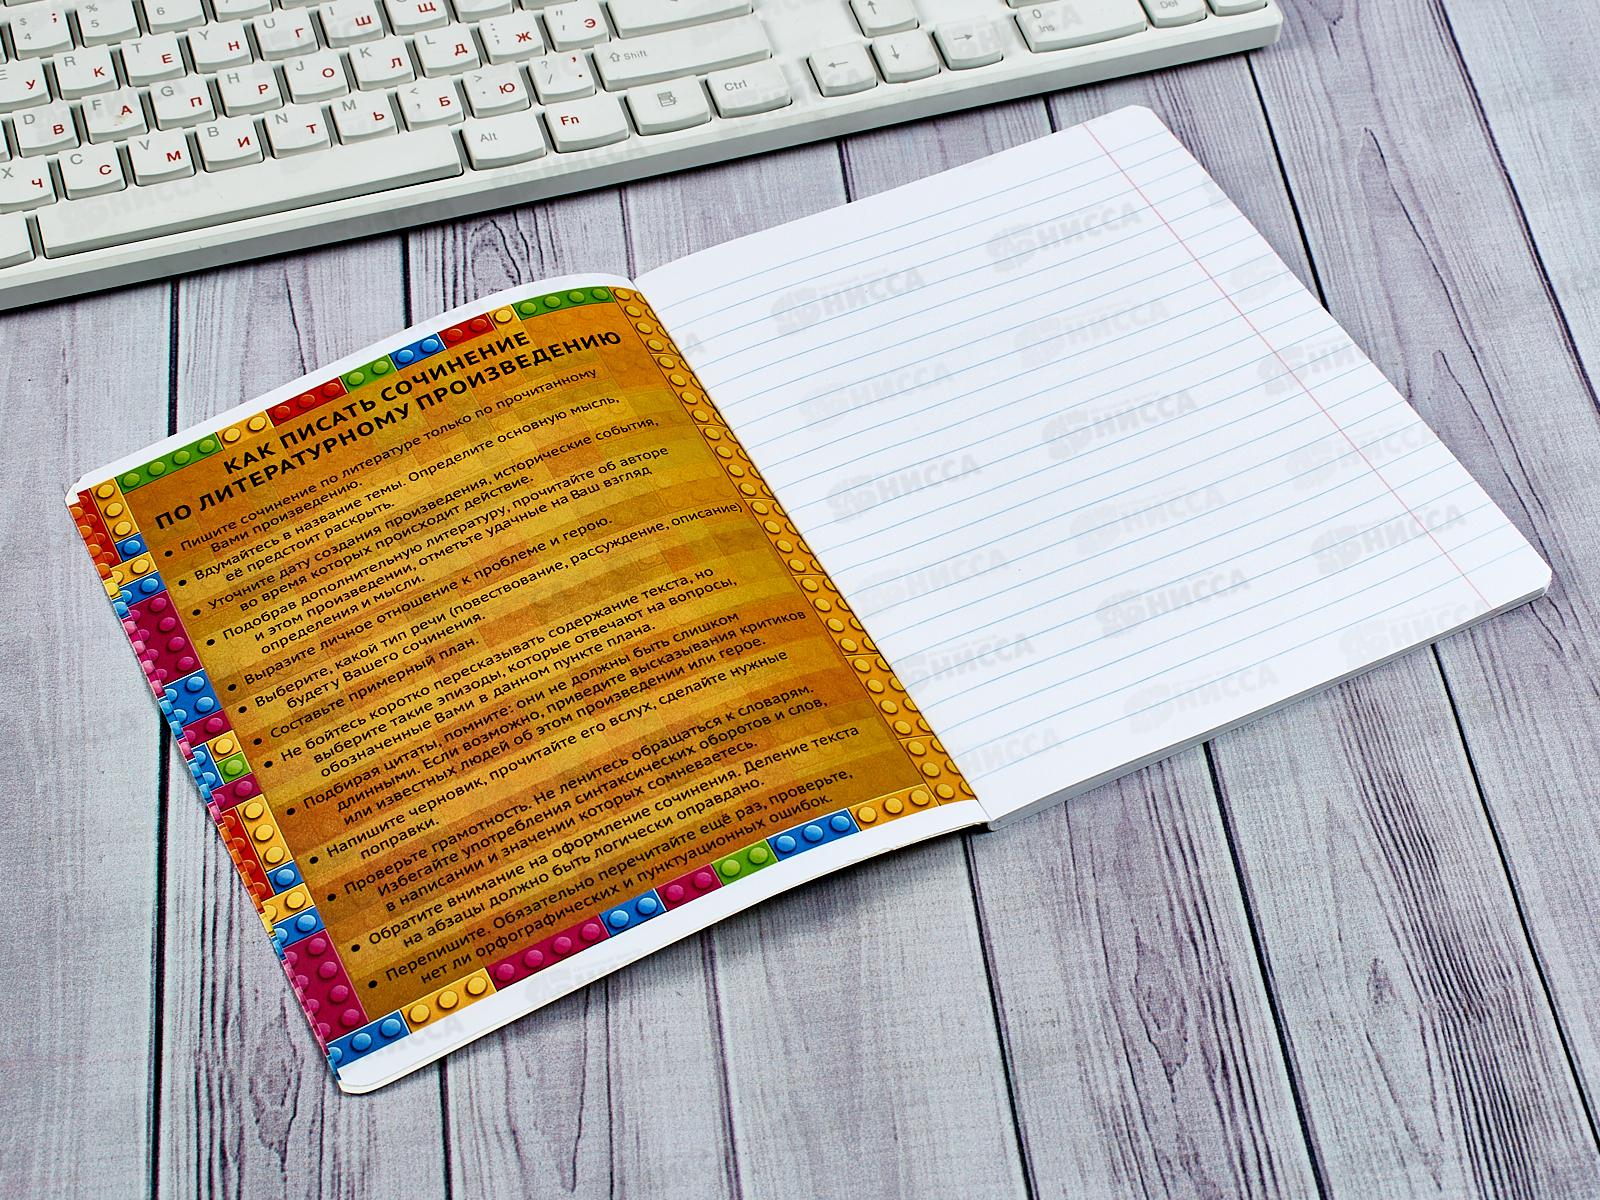 КАК ПИСАТЬ СОЧИНЕНИЕ
ПО ЛИТЕРАТУРНОМУ ПРОИЗВЕДЕНИЮ
• Пишите сочинение по литературе только по прочитанному
Вами произведению.
• Вдумайтесь в название темы. Определите основную мысль,
её предстоит раскрыть.
• Уточните дату создания произведения, исторические события,
во время которых происходит действие.
• Подобрав дополнительную литературу, прочитайте об авторе
и этом произведении, отметьте удачные на Ваш взгляд
определения и мысли.
• Выразите личное отношение к проблеме и герою.
• Выберите, какой тип речи (повествование, рассуждение, описание)
будет у Вашего сочинения.
• Составьте примерный план.
• Не бойтесь коротко пересказывать содержание текста, но
выберите такие эпизоды, которые отвечают на вопросы,
обозначенные Вами в данном пункте плана.
• Подбирая цитаты, помните: они не должны быть слишком
длинными. Если возможно, приведите высказывания критиков
или известных людей об этом произведении или герое.
• Напишите черновик, прочитайте его вслух, сделайте нужные
поправки.
• Проверьте грамотность. Не ленитесь обращаться к словарям.
Избегайте употребления синтаксических оборотов и слов,
в написании и значении которых сомневаетесь.
• Обратите внимание на оформление сочинения. Деление текста
на абзацы должно быть логически оправдано.
• Перепишите. Обязательно перечитайте ещё раз, проверьте,
нет ли орфографических и пунктуационных ошибок.
Shift
Ctrl
Alt
Fn
0
Ins
Del
НИССА